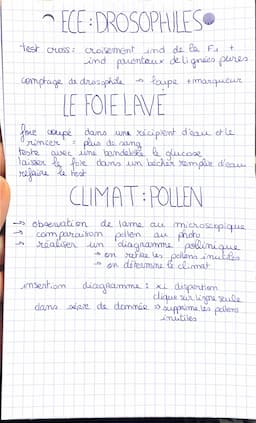 ECE : DROSOPHILES
test cross : croisement ind de la F1 +
ind parentaux de lignées pures
comptage de drosophile → loupe + marqueur
LE FOIE LAVÉ
foie coupé dans un récipient d'eau et le
rincer = plus de sang
teste avec une bandelette le glucose
laisser le foie dans un bécher remplie d'eau
refaire le test
CLIMAT : POLLEN
→ observation de lame au microscopique
→ comparaison pollen au photo
→ réaliser un diagramme pollinique
→ on retire les polens inutiles
→ on détermine le climat
insertion diagramme : xi dispertion
clique sur ligne seule
dans série de donnée → supprime les pollens
inutiles